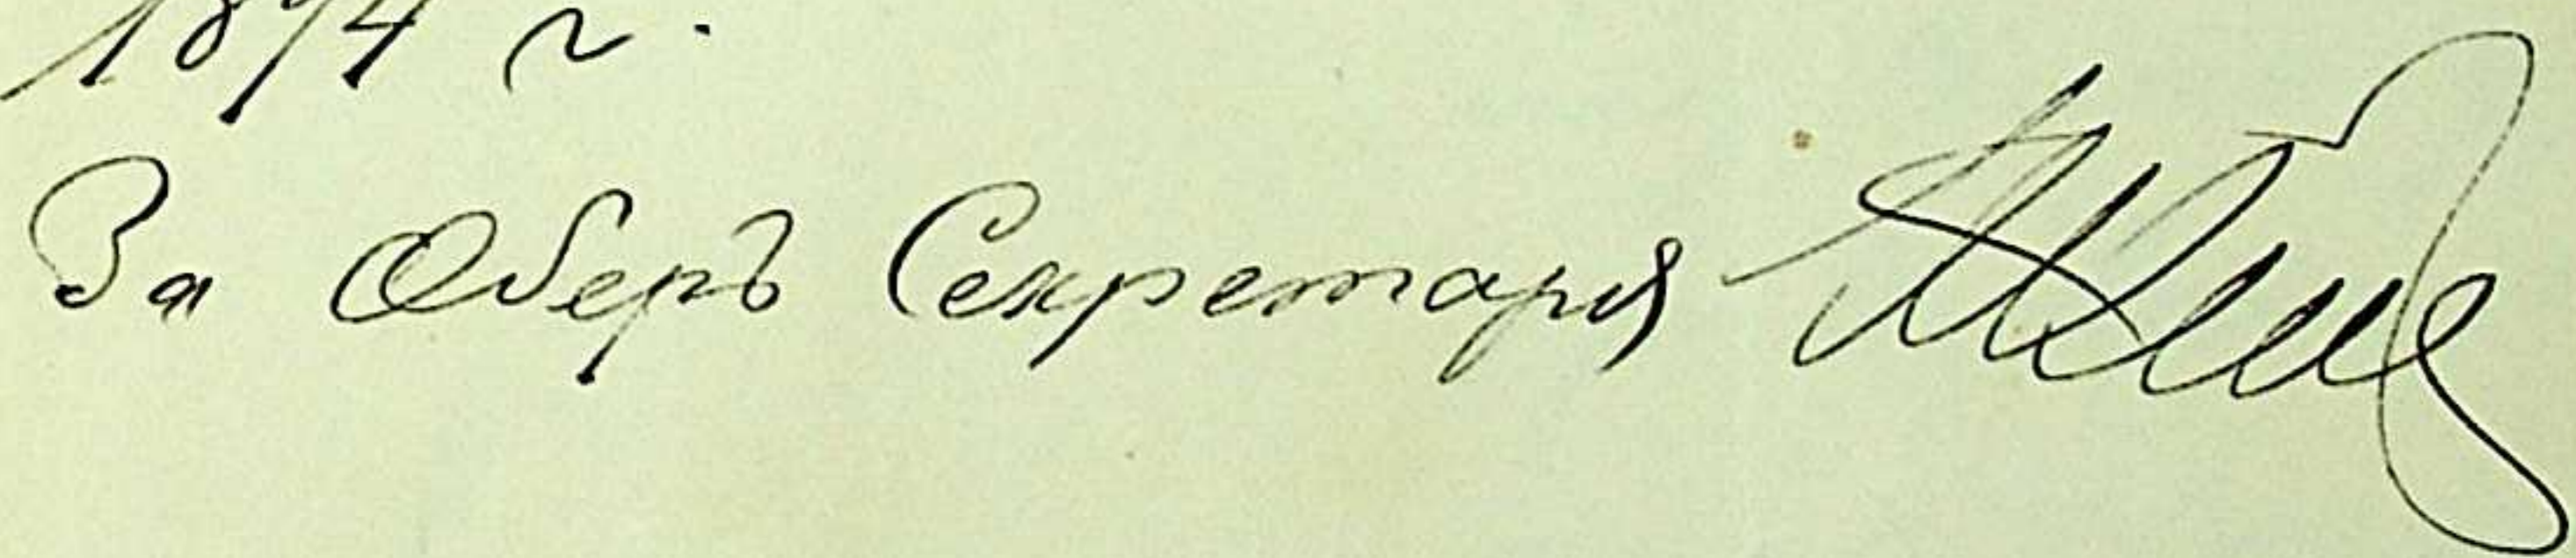 1874 г.
За Оберъ Секретаря